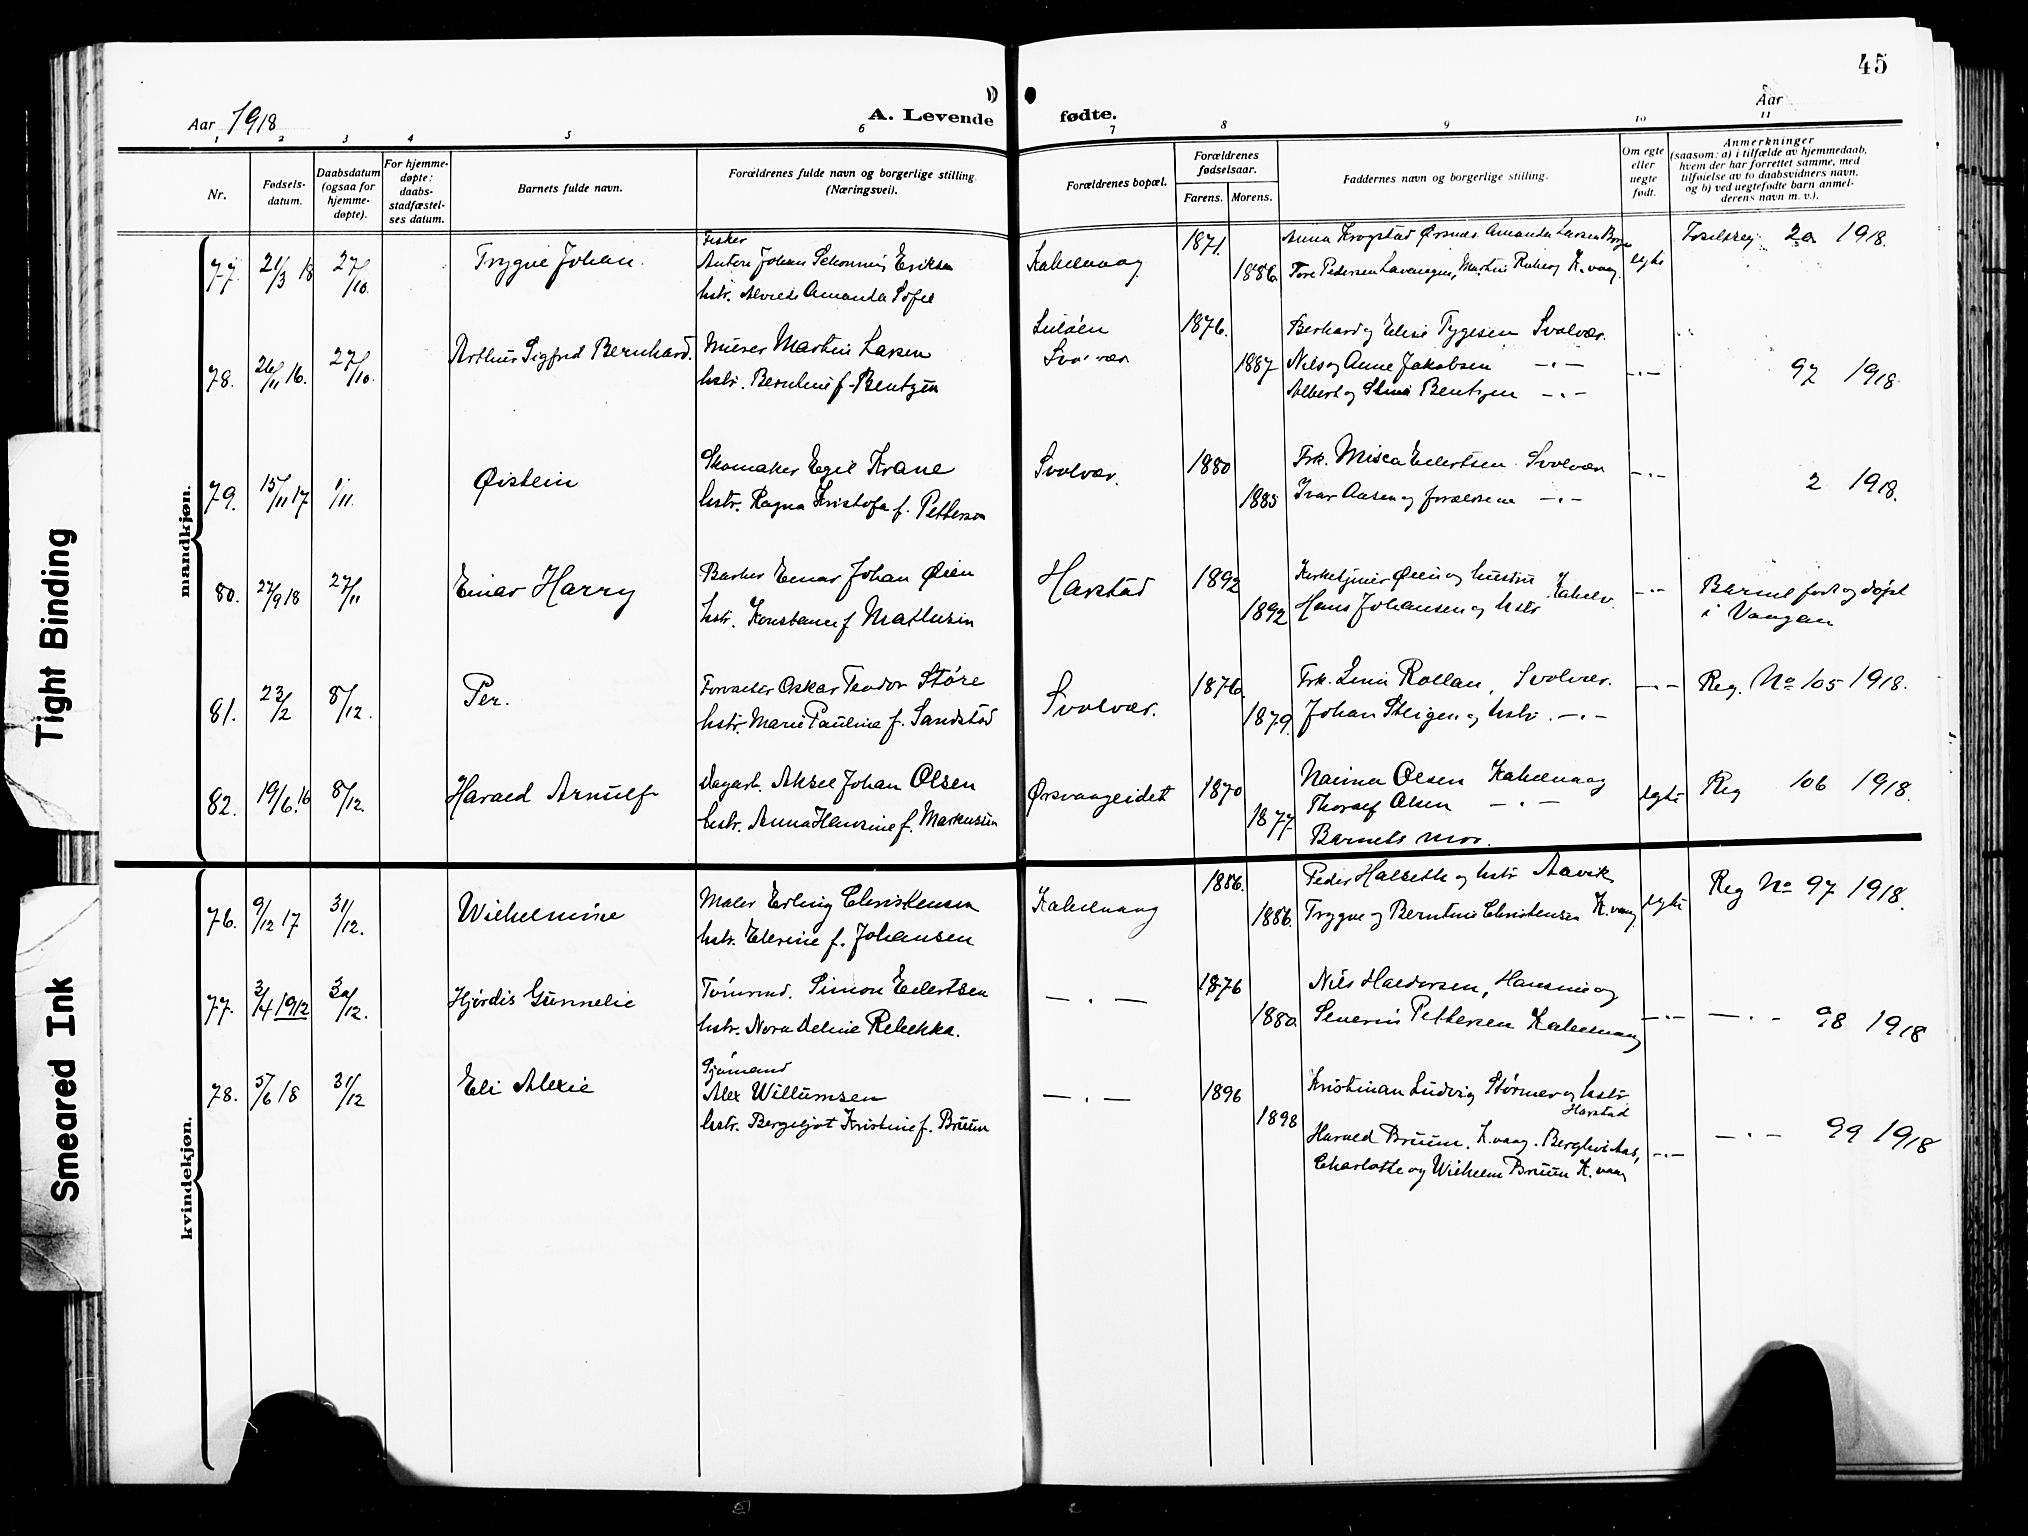 45
Aar 1918
A. Levende fødte.
Aar
1 2 3 4 5 6 7 8 9 10 11
Nr.
Fødsels-
datum.
Daabsdatum
(ogsaa for
hjemme-
døpte).
For hjemme-
døpte:
daabs-
stadfæstel-
ses datum.
Barnets fulde navn.
Forældrenes fulde navn og borgerlige stilling.
(Næringsvei).
Forældrenes bopæl.
Forældrenes
fødselsaar.
Farens. Morens.
Faddernes navn og borgerlige stilling.
Om egte
eller
uegte
født.
Anmerkninger
(saasom: a) i tilfælde av hjemmedaab,
hvem der har forrettet samme, med
tilføielse av to daabsvidners navn,
og b) ved uegtefødte barn anmel-
derens navn m. v.).
mandkjøn.
77. 21/3 18 27/10. Trygve Johan.
Fisker
Anton Johan Schonning Eriksen
hstr. Alvilde Amanda Sofie
Kabelvaag 1871. 1886.
Anna Krogstad Ørsnes Amanda Larsen
Tore Pedersen Martin K.vaag
egte
20 1918.
78. 26/11 16. 27/10. Arthur Sigfred Bernhard.
Murer Martin Larsen
hstr. Berntine f. Bentzen
Svolvær 1876. 1887
Berhard og Elise Tygesen Svolvær.
Nils og Anne Jakobsen —·—
Albert og Bentzen —·—
—·— 97 1918
79. 15/11 17 1/11. Øistein
Skomaker Egil Krane
hstr. Ragna Kristofa f. Pettersen
Svolvær. 1880 1885
Frk. Misca Eilertsen Svolvær
Ivar Aasen og forældrene —·—
—·— 2 1918.
80. 27/9 18 27/11 Einar Harry
Barber Einar Johan Øien
hstr. Konstance f. Mathisen
Harstad 1892 1892
Kirketjener Øien og hustru
Hans Johansen og hstr Kabelv.
—·— Barnet født og døpt
i Vaagan
81. 23/2 8/12. Per.
Forvalter Oskar Teodor Støre
hstr. Marie Pauline f. Sandstad
Svolvær. 1876. 1879.
Frk. Lina Rollan, Svolvær.
Johan Steigen og hstr. —·—
—·— Reg. No 105 1918.
82. 19/6. 16 8/12. Harald Arnulf
Dagarb. Aksel Johan Olsen
hstr. Anna Hansine f. Markussen
Ørsvaageidet 1870 1877.
Naima Olsen Kabelvaag
Thoralf Olsen —·—
Barnets mor.
egte Reg 106 1918.
kvindekjøn.
76. 9/12 17 31/12. Wilhelmine
Maler Erling Christensen
hstr. Elerine f. Johansen
Kabelvaag 1886. 1886.
Peder Halseth og hstr Aavik
Trygve og Berntine Christensen K.vaag
egte Reg No 97 1918.
77. 3/4 1912 30/12. Hjørdis Gunnelie
Tømmd. Simon Eilertsen
hstr. Nora Oeline Rebekka.
—·— 1876 1880.
Nils Haldorsen, Hansine og
Severin Pettersen Kabelvaag
—·— —·— 98 1918
78. 5/6 18 31/12 Eli Alexie
Sjømand
Alex Willumsen
hstr. Bergljot Kristine f. Bruun
—·— 1896 1898
Kristinan Ludvig Størmer og hstr
Harstad
Harald Bruun, K.vaag.
Charlotte og Wilhelm Bruun K.vaag
—·— —·— 99 1918
Tight Binding
Smeared Ink